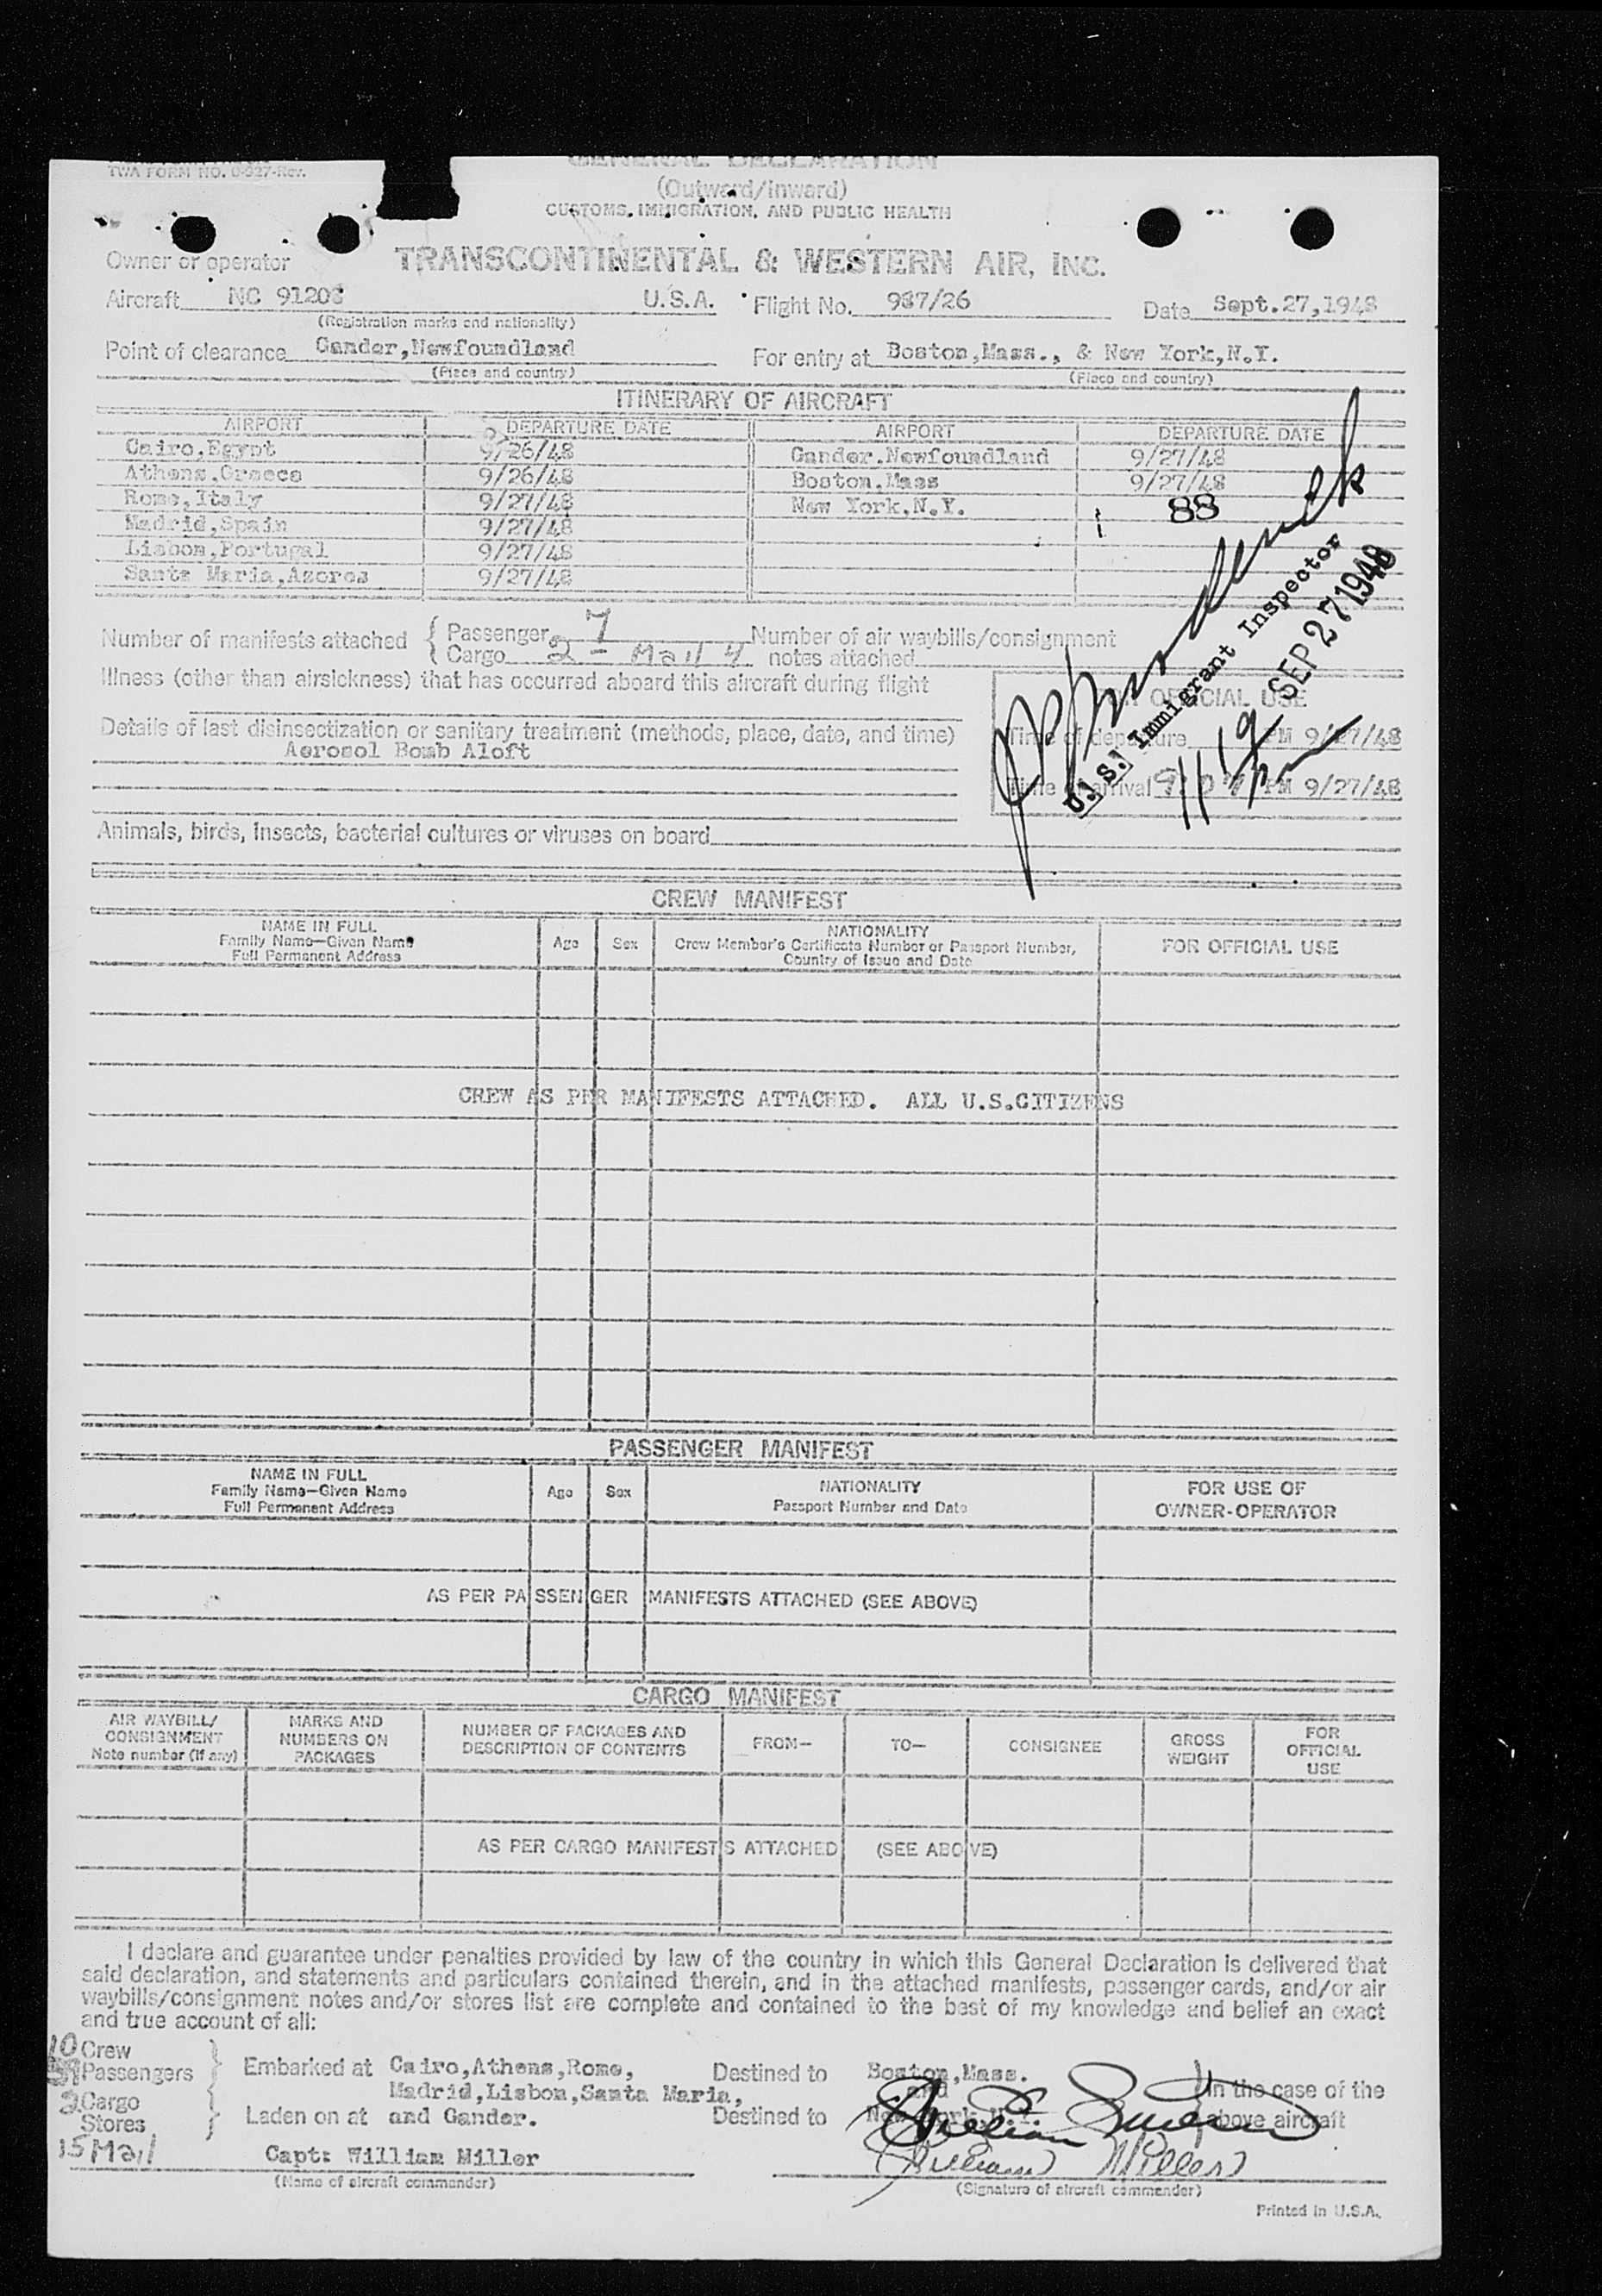 TWA FORM NO. O-527-Rev.
GENERAL DECLARATION
(Outward/Inward)
CUSTOMS, IMMIGRATION, AND PUBLIC HEALTH
Owner or operator TRANSCONTINENTAL & WESTERN AIR, INC.
Aircraft NC 91208 U.S.A. Flight No. 937/26 Date Sept.27,1948
(Registration marks and nationality)
Point of clearance Gander,Newfoundland For entry at Boston,Mass., & New York,N.Y.
(Place and country) (Place and country)
ITINERARY OF AIRCRAFT
AIRPORT DEPARTURE DATE AIRPORT DEPARTURE DATE
Cairo,Egypt 9/26/48 Gander,Newfoundland 9/27/48
Athens,Greece 9/26/48 Boston,Mass 9/27/48
Rome,Italy 9/27/48 New York,N.Y. 88
Madrid,Spain 9/27/48
Lisbon,Portugal 9/27/48
Santa Maria,Azores 9/27/48
U.S. Immigrant Inspector
SEP 27 1948
Number of manifests attached { Passenger 7 Number of air waybills/consignment
Cargo 2 - Mail 4 notes attached
Illness (other than airsickness) that has occurred aboard this aircraft during flight
OFFICIAL USE
Details of last disinsectization or sanitary treatment (methods, place, date, and time)
Time of departure PM 9/27/48
Aerosol Bomb Aloft
1119 pm
Time of arrival PM 9/27/48
Animals, birds, insects, bacterial cultures or viruses on board
CREW MANIFEST
NAME IN FULL
Family Name—Given Name
Full Permanent Address
Age Sex
NATIONALITY
Crew Member's Certificate Number or Passport Number,
Country of Issue and Date
FOR OFFICIAL USE
CREW AS PER MANIFESTS ATTACHED. ALL U.S.CITIZENS
PASSENGER MANIFEST
NAME IN FULL
Family Name—Given Name
Full Permanent Address
Age Sex
NATIONALITY
Passport Number and Date
FOR USE OF
OWNER-OPERATOR
AS PER PASSENGER MANIFESTS ATTACHED (SEE ABOVE)
CARGO MANIFEST
AIR WAYBILL/
CONSIGNMENT
Note number (if any)
MARKS AND
NUMBERS ON
PACKAGES
NUMBER OF PACKAGES AND
DESCRIPTION OF CONTENTS
FROM—
TO—
CONSIGNEE
GROSS
WEIGHT
FOR
OFFICIAL
USE
AS PER CARGO MANIFESTS ATTACHED (SEE ABOVE)
I declare and guarantee under penalties provided by law of the country in which this General Declaration is delivered that
said declaration, and statements and particulars contained therein, and in the attached manifests, passenger cards, and/or air
waybills/consignment notes and/or stores list are complete and contained to the best of my knowledge and belief an exact
and true account of all:
10 Crew
Passengers Embarked at Cairo,Athens,Rome, Destined to Boston,Mass.
Madrid,Lisbon,Santa Maria, and In the case of the
2 Cargo
Stores Laden on at and Gander. Destined to New York,N.Y. above aircraft
15 Mail
Capt: William Miller (William Miller)
(Name of aircraft commander) (Signature of aircraft commander)
Printed in U.S.A.